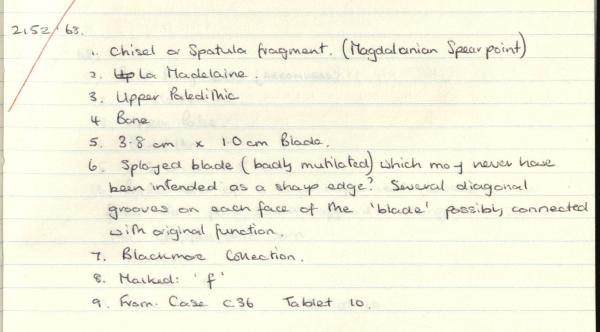 2152'63.
1. Chisel or Spatula fragment. (Magdalanian Spear point)
2. Up La Madelaine.
3. Upper Paleolithic
4 Bone
5. 3.8 cm x 1.0 cm Blade.
6. Splayed blade (badly mutilated) which may never have
been intended as a sharp edge? Several diagonal
grooves on each face of the 'blade' possibly connected
with original function.
7. Blackmore Collection.
8. Marked: 'f'
9. From Case C36 Tablet 10.